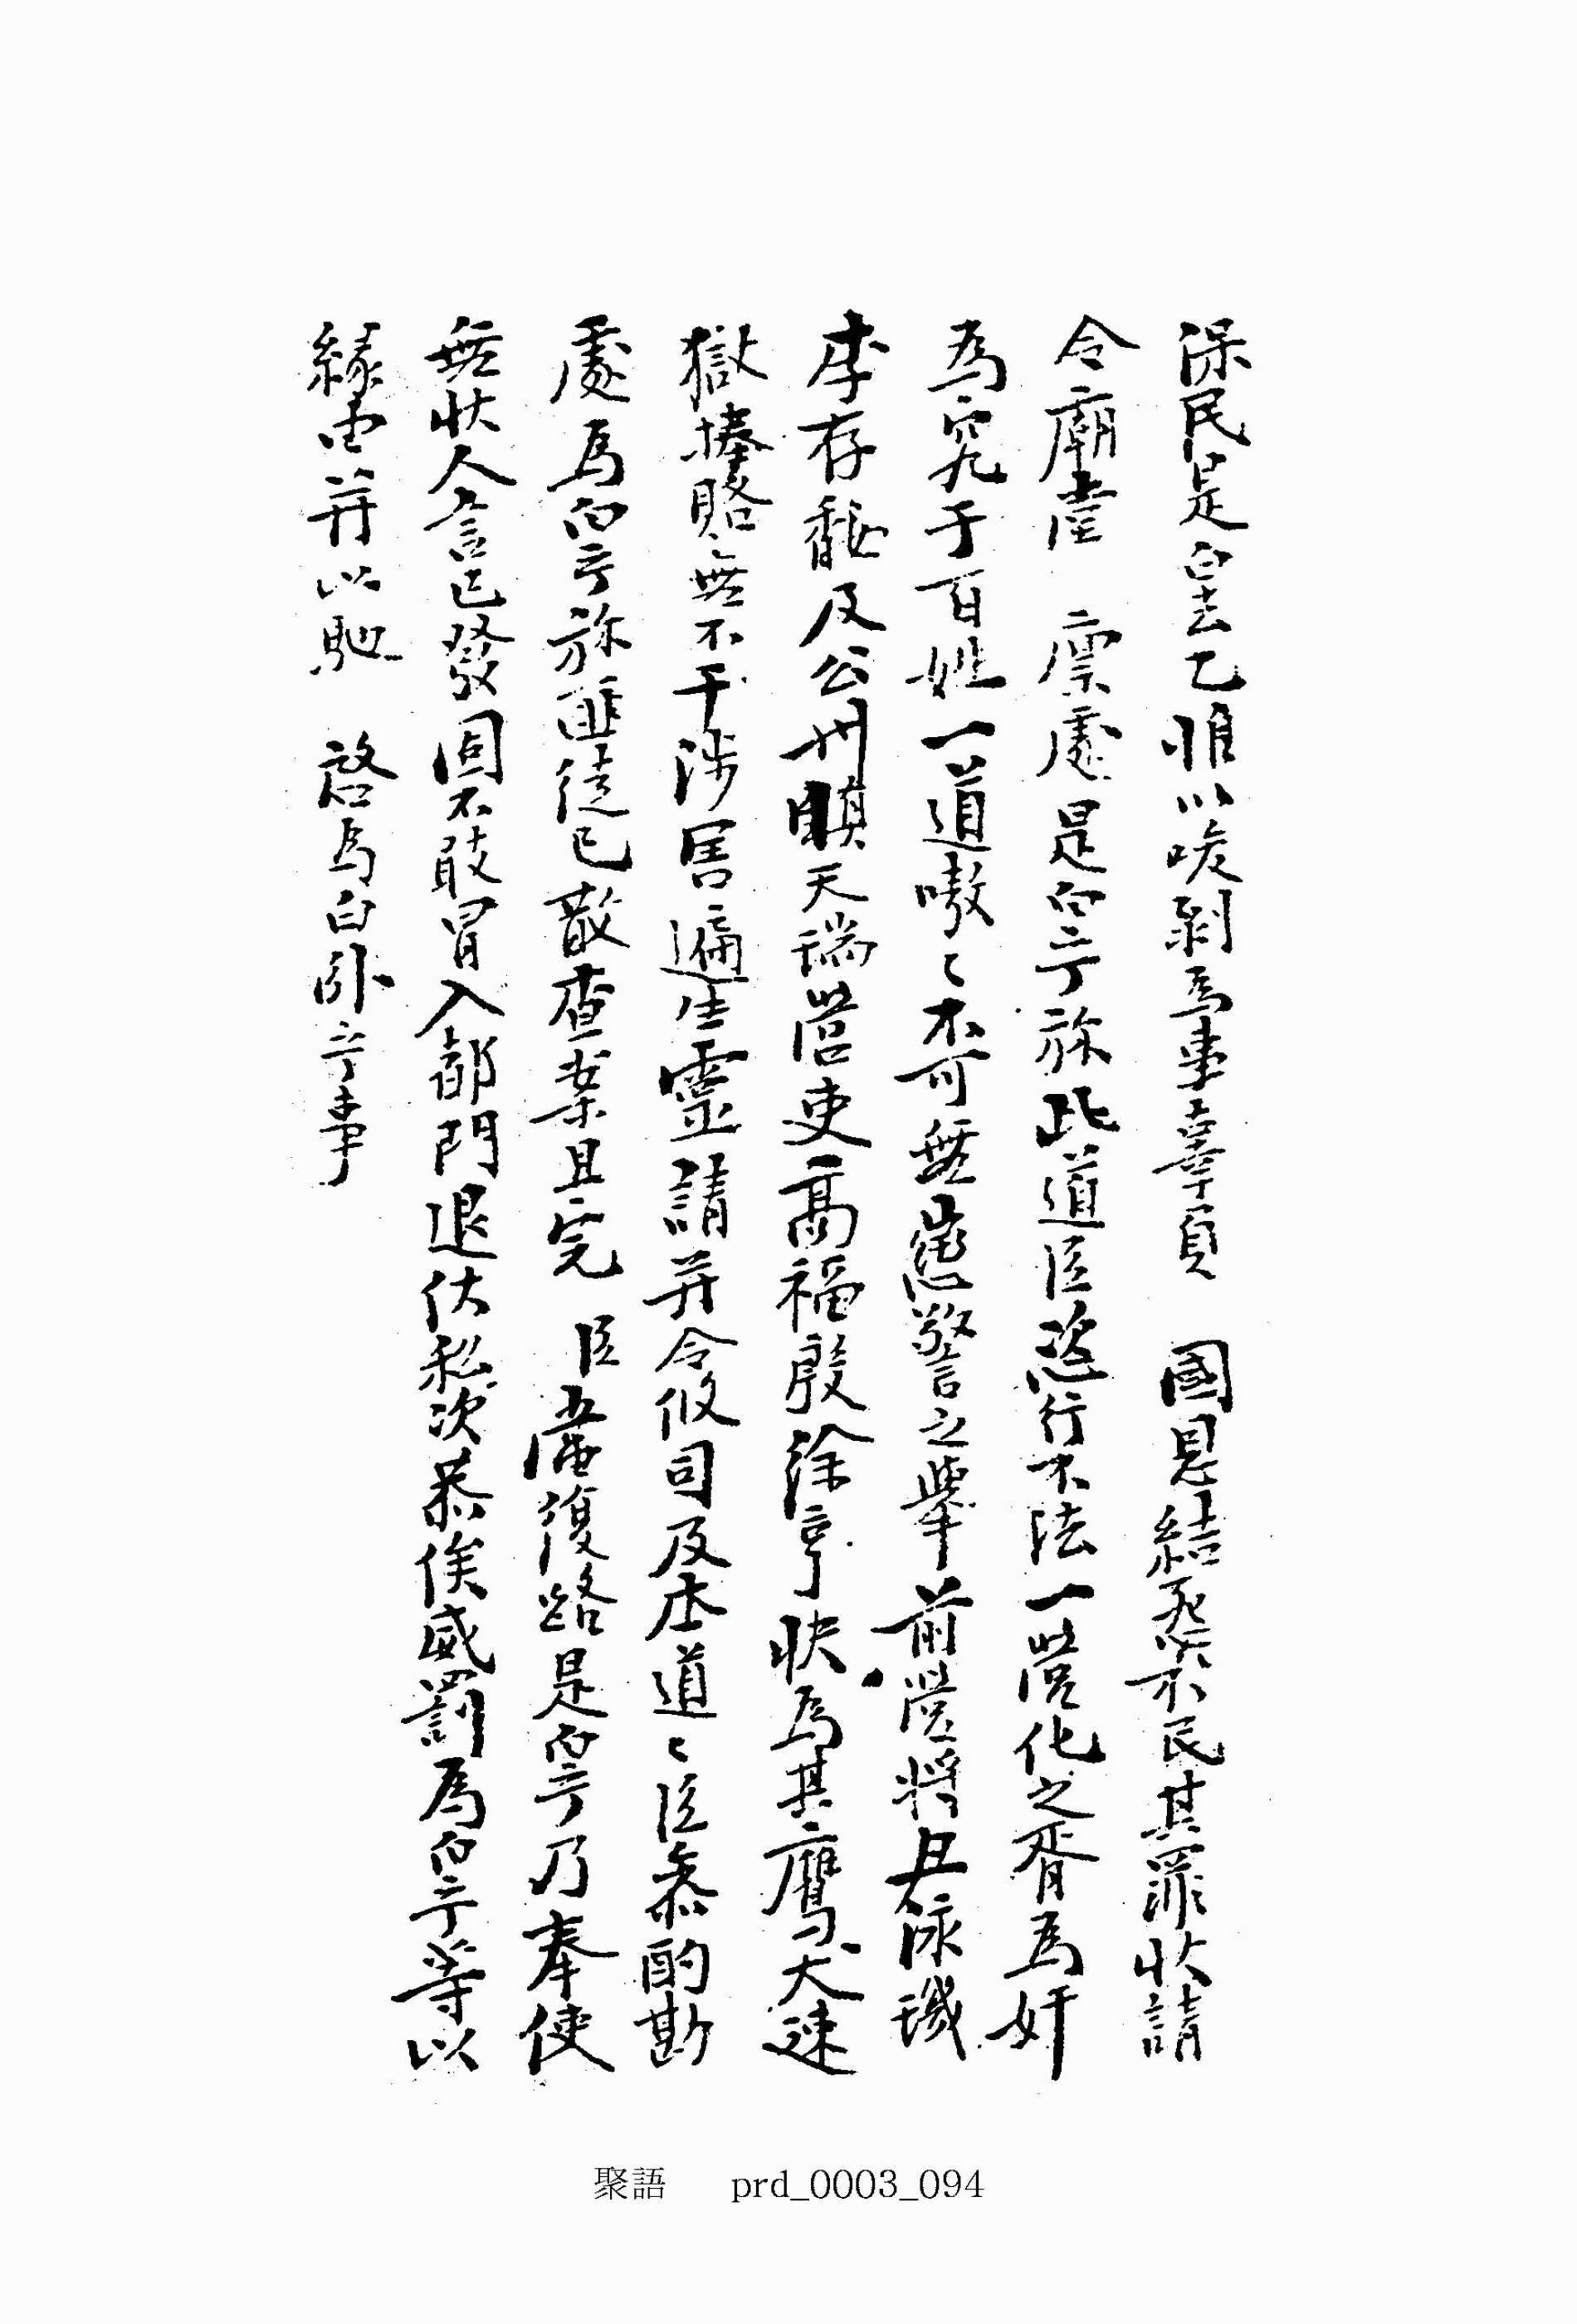 保民是白去乙惟以浚剝爲事辜負 國恩結怨小民其罪狀請
令廟堂 稟處是白乎旀此道臣恣行不法一營化之胥爲奸
爲宄于百姓一道嗷〻不可無懲警之擧前營將具泳璣
李存馣及公州瞋天瑞營吏高福殷徐亨快爲其鷹犬速
獄捧賂無不干涉害遍生靈請并令攸司及本道〻臣參酌勘
處爲白乎旀匪徒已散査案且完 臣䔍復路是白乎乃奉使
無狀人言已發固不敢冒入都門退伏私次恭俟威罰爲白乎等以
緣由并以馳 啓爲白臥乎事
聚語 prd_0003_094